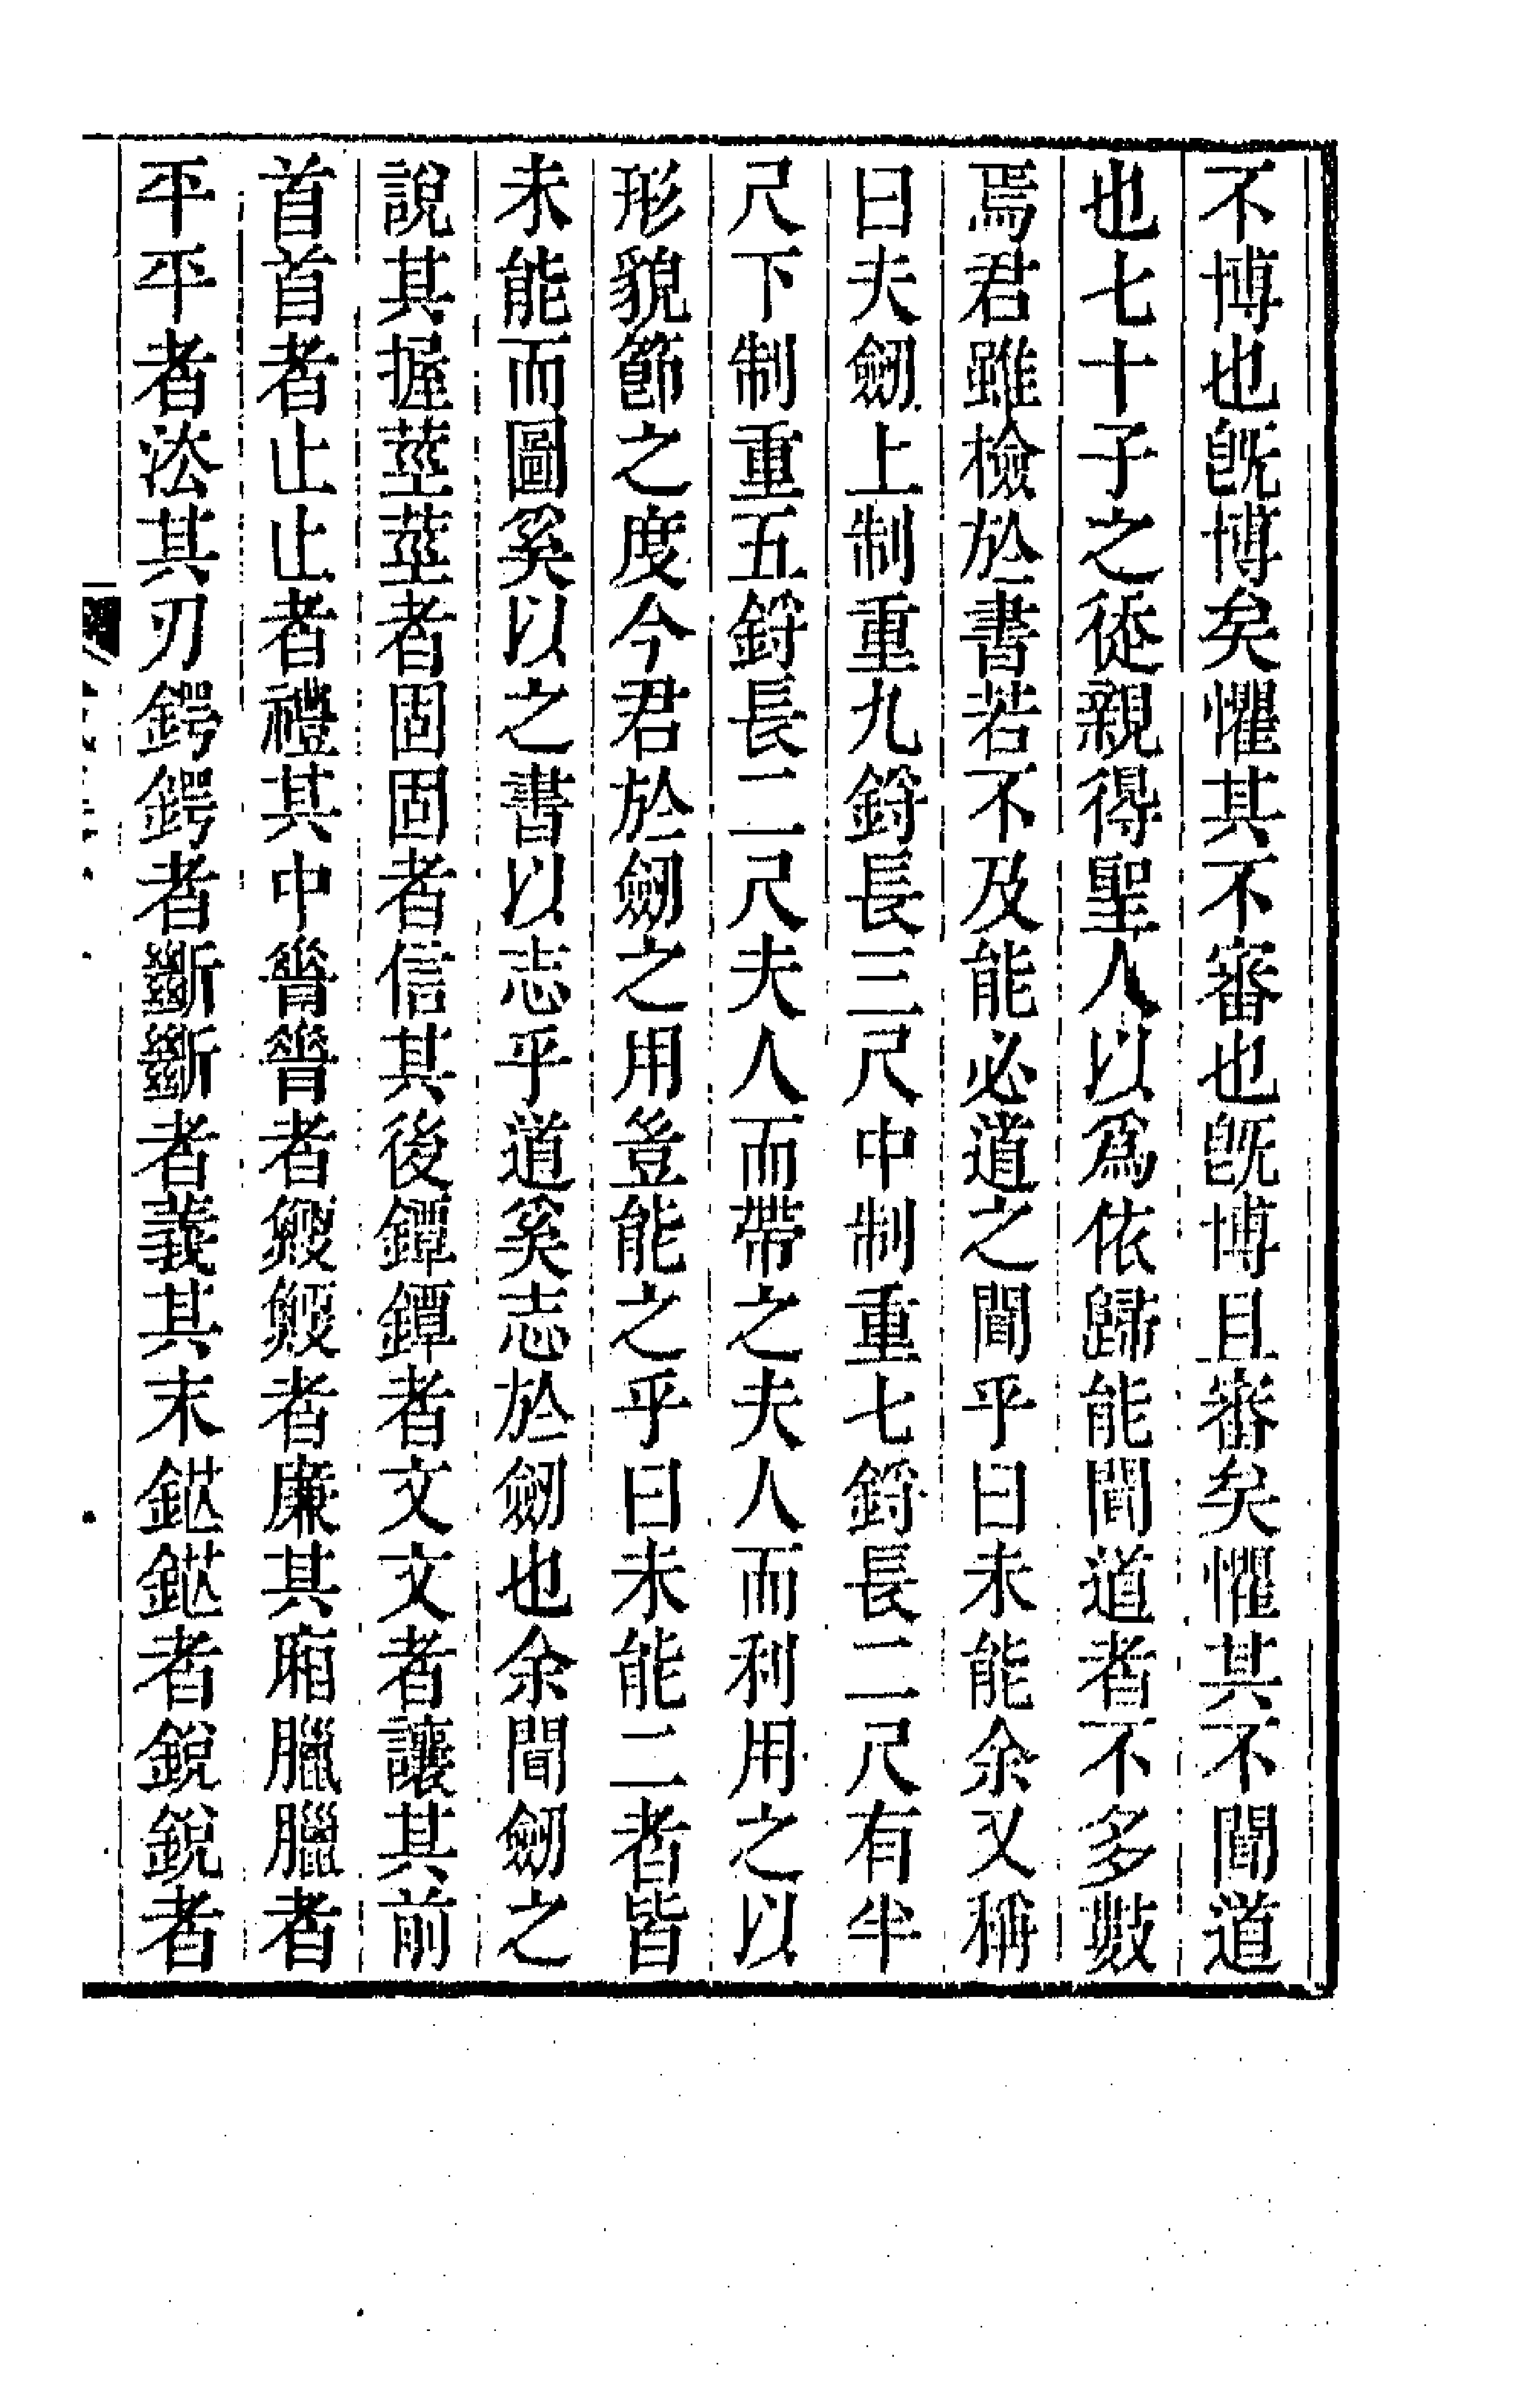 不博也旣博矣懼其不審也旣博且審矣懼其不聞道
也七十子之徒親得聖人以爲依歸能聞道者不多數
焉君雖檢於書若不及能必道之聞乎曰未能余又稱
曰夫劒上制重九鋝長三尺中制重七鋝長二尺有半
尺下制重五鋝長二尺夫人而帶之夫人而利用之以
形貌節之度今君於劒之用豈能之乎曰未能二者皆
未能而圖奚以之書以志乎道奚志於劒也余聞劒之
說其握莖莖者固固者信其後鐔鐔者文文者讓其前
首首者止止者禮其中脊脊者鯁鯁者廉其廂臘臘者
平平者法其刃鍔鍔者斷斷者義其末鋩鋩者銳銳者